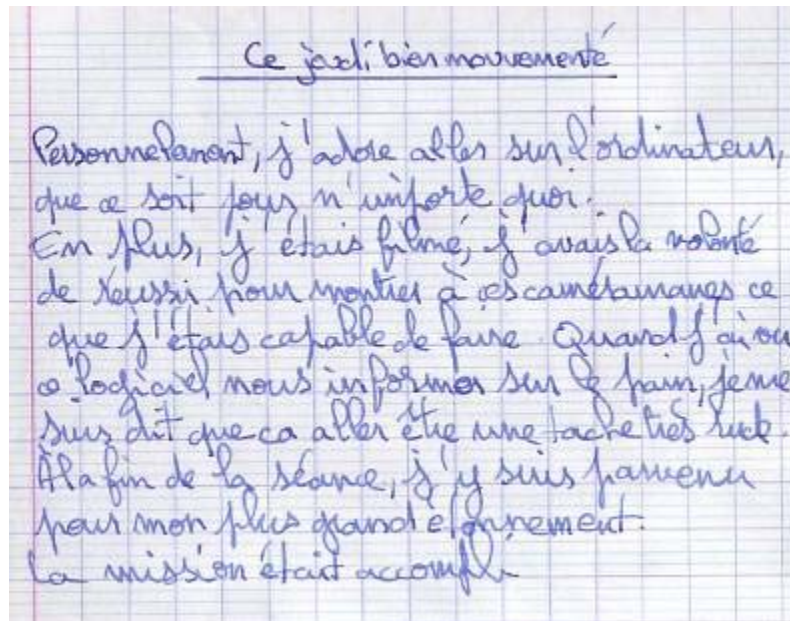 Ce jeudi bien mouvementé
Personnelement, j'adore aller sur l'ordinateur,
que ce soit pour n'importe quoi.
En plus, j'étais filmé, j'avais la volonté
de réussir pour montrer à ces caméramans ce
que j'étais capable de faire. Quand j'ai vu
ce logiciel nous informer sur le pain, je me
suis dit que ca aller être une tache très rude.
A la fin de la séance, j'y suis parvenu
pour mon plus grand étonnement.
La mission était accompli